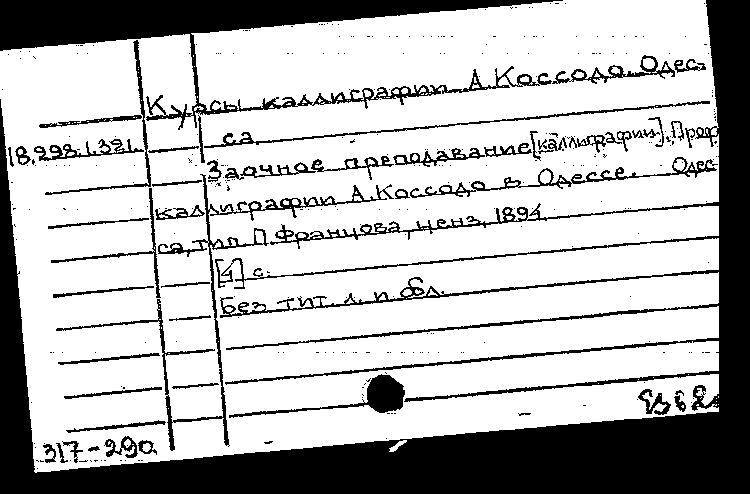 Курсы каллиграфии А.Коссодо. Одес-
18.298.1.321. са
Заочное преподавание [каллиграфии]. Проф.
каллиграфии А.Коссодо в Одессе. Одес
са, тип. П.Францова, ценз. 1894
[4] с.
Без тит. л. и обл.
317-290